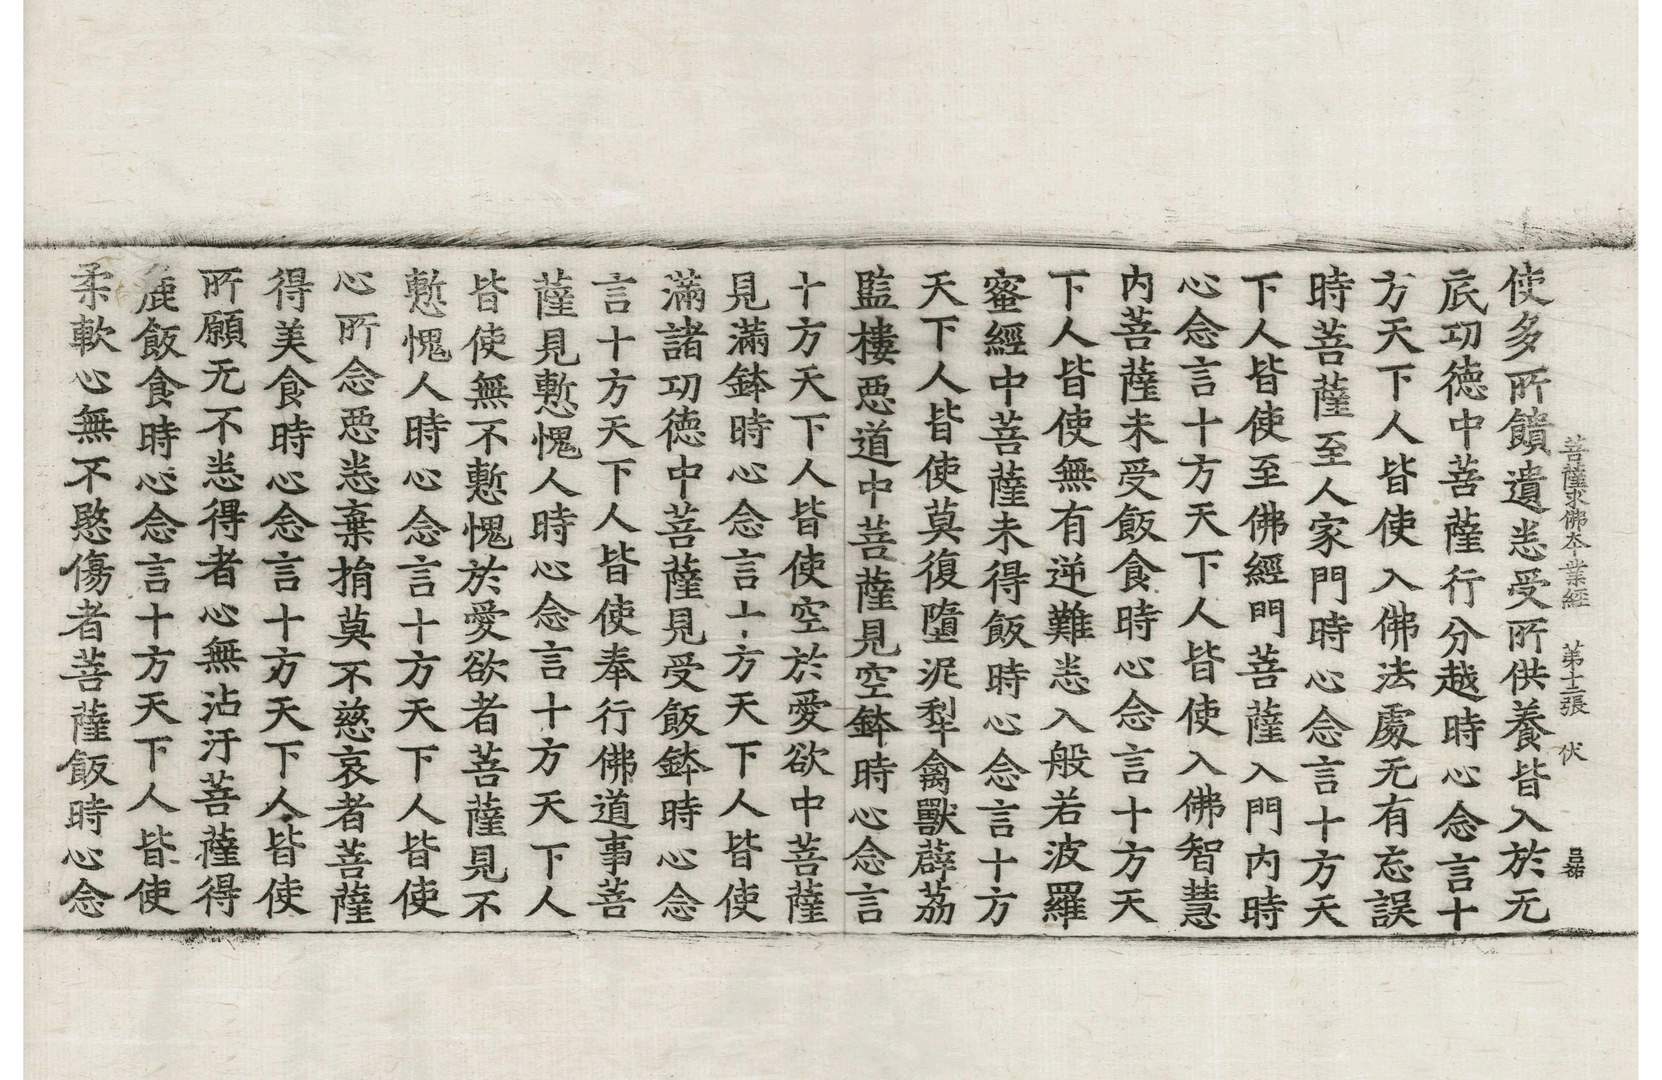 菩薩求佛本業經　第十二張　伏
使多所饋遺悉受所供養皆入於无
底功德中菩薩行分越時心念言十
方天下人皆使入佛法處无有忘誤
時菩薩至人家門時心念言十方天
下人皆使至佛經門菩薩入門內時
心念言十方天下人皆使入佛智慧
內菩薩未受飯食時心念言十方天
下人皆使無有逆難悉入般若波羅
蜜經中菩薩未得飯時心念言十方
天下人皆使莫復墮泥犁禽獸薜荔
監樓惡道中菩薩見空鉢時心念言
十方天下人皆使空於愛欲中菩薩
見滿鉢時心念言十方天下人皆使
滿諸功德中菩薩見受飯鉢時心念
言十方天下人皆使奉行佛道事菩
薩見慙愧人時心念言十方天下人
皆使無不慙愧於愛欲者菩薩見不
慙愧人時心念言十方天下人皆使
心所念惡悉棄捐莫不慈哀者菩薩
得美食時心念言十方天下人皆使
所願无不悉得者心無沾汙菩薩得
麁飯食時心念言十方天下人皆使
柔軟心無不愍傷者菩薩飯時心念